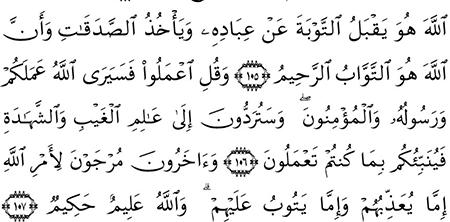 ٱللَّهَ هُوَ يَقْبَلُ ٱلتَّوْبَةَ عَنْ عِبَادِهِۦ وَيَأْخُذُ ٱلصَّدَقَٰتِ وَأَنَّ
ٱللَّهَ هُوَ ٱلتَّوَّابُ ٱلرَّحِيمُ ﴿١٠٥﴾ وَقُلِ ٱعْمَلُوا۟ فَسَيَرَى ٱللَّهُ عَمَلَكُمْ
وَرَسُولُهُۥ وَٱلْمُؤْمِنُونَ ۖ وَسَتُرَدُّونَ إِلَىٰ عَٰلِمِ ٱلْغَيْبِ وَٱلشَّهَٰدَةِ
فَيُنَبِّئُكُم بِمَا كُنتُمْ تَعْمَلُونَ ﴿١٠٦﴾ وَءَاخَرُونَ مُرْجَوْنَ لِأَمْرِ ٱللَّهِ
إِمَّا يُعَذِّبُهُمْ وَإِمَّا يَتُوبُ عَلَيْهِمْ ۗ وَٱللَّهُ عَلِيمٌ حَكِيمٌ ﴿١٠٧﴾